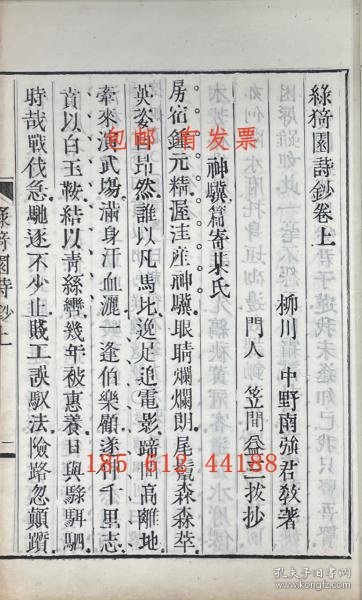 綠猗園詩鈔卷上
柳川 中野南強君敎著
門人 笠間益三拔抄
神驥篇寄某氏
房宿鍾元精渥洼産神驥眼睛爛爛朗尾鬣森森萃
英姿昂然誰以凡馬比逸足追電影蹄間高離地
牽來演武場滿身汗血灑一逢伯樂顧遂伸千里志
賁以白玉鞍結以靑絲轡幾年被惠養日與騄駬駟
時哉戰伐急馳逐不少止賤工誤馭法險路忽顚躓
綠猗園詩鈔上
一
包邮 首发票
185 612 44188
孔夫子旧书网